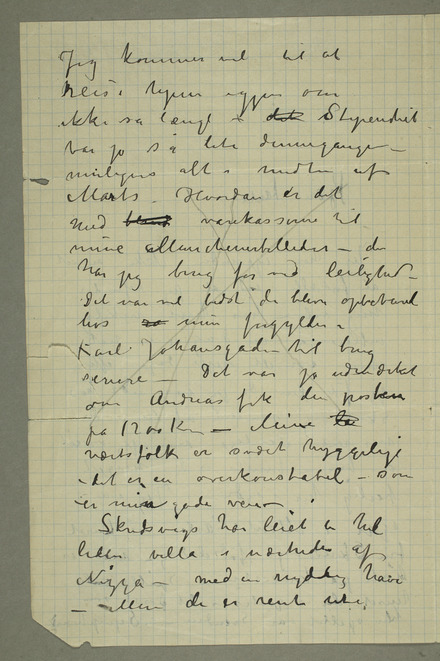 Jeg kommer vel til at
reise hjem igjen om
ikke så længe – Stipendiet
var jo så lite denne gangen –
muligens alt i midten af
Marts. Hvordan er det
med varekasserne til
mine – de
har jeg brug for ved leilighed –
Det var vel bedst de blev opbevaret
hos min forgylder i
Karl Johansgade til brug
senere – Det var jo udmærket
om Andreas fik den posten
på 1200 Kr – Mine
værtsfolk er svært hyggelige
– det er en overkonstabel – som
er min gode ven
Skredsvigs har leiet en hel
liden villa i nærheden af
Nizza – med en nydelig have
– Men de er